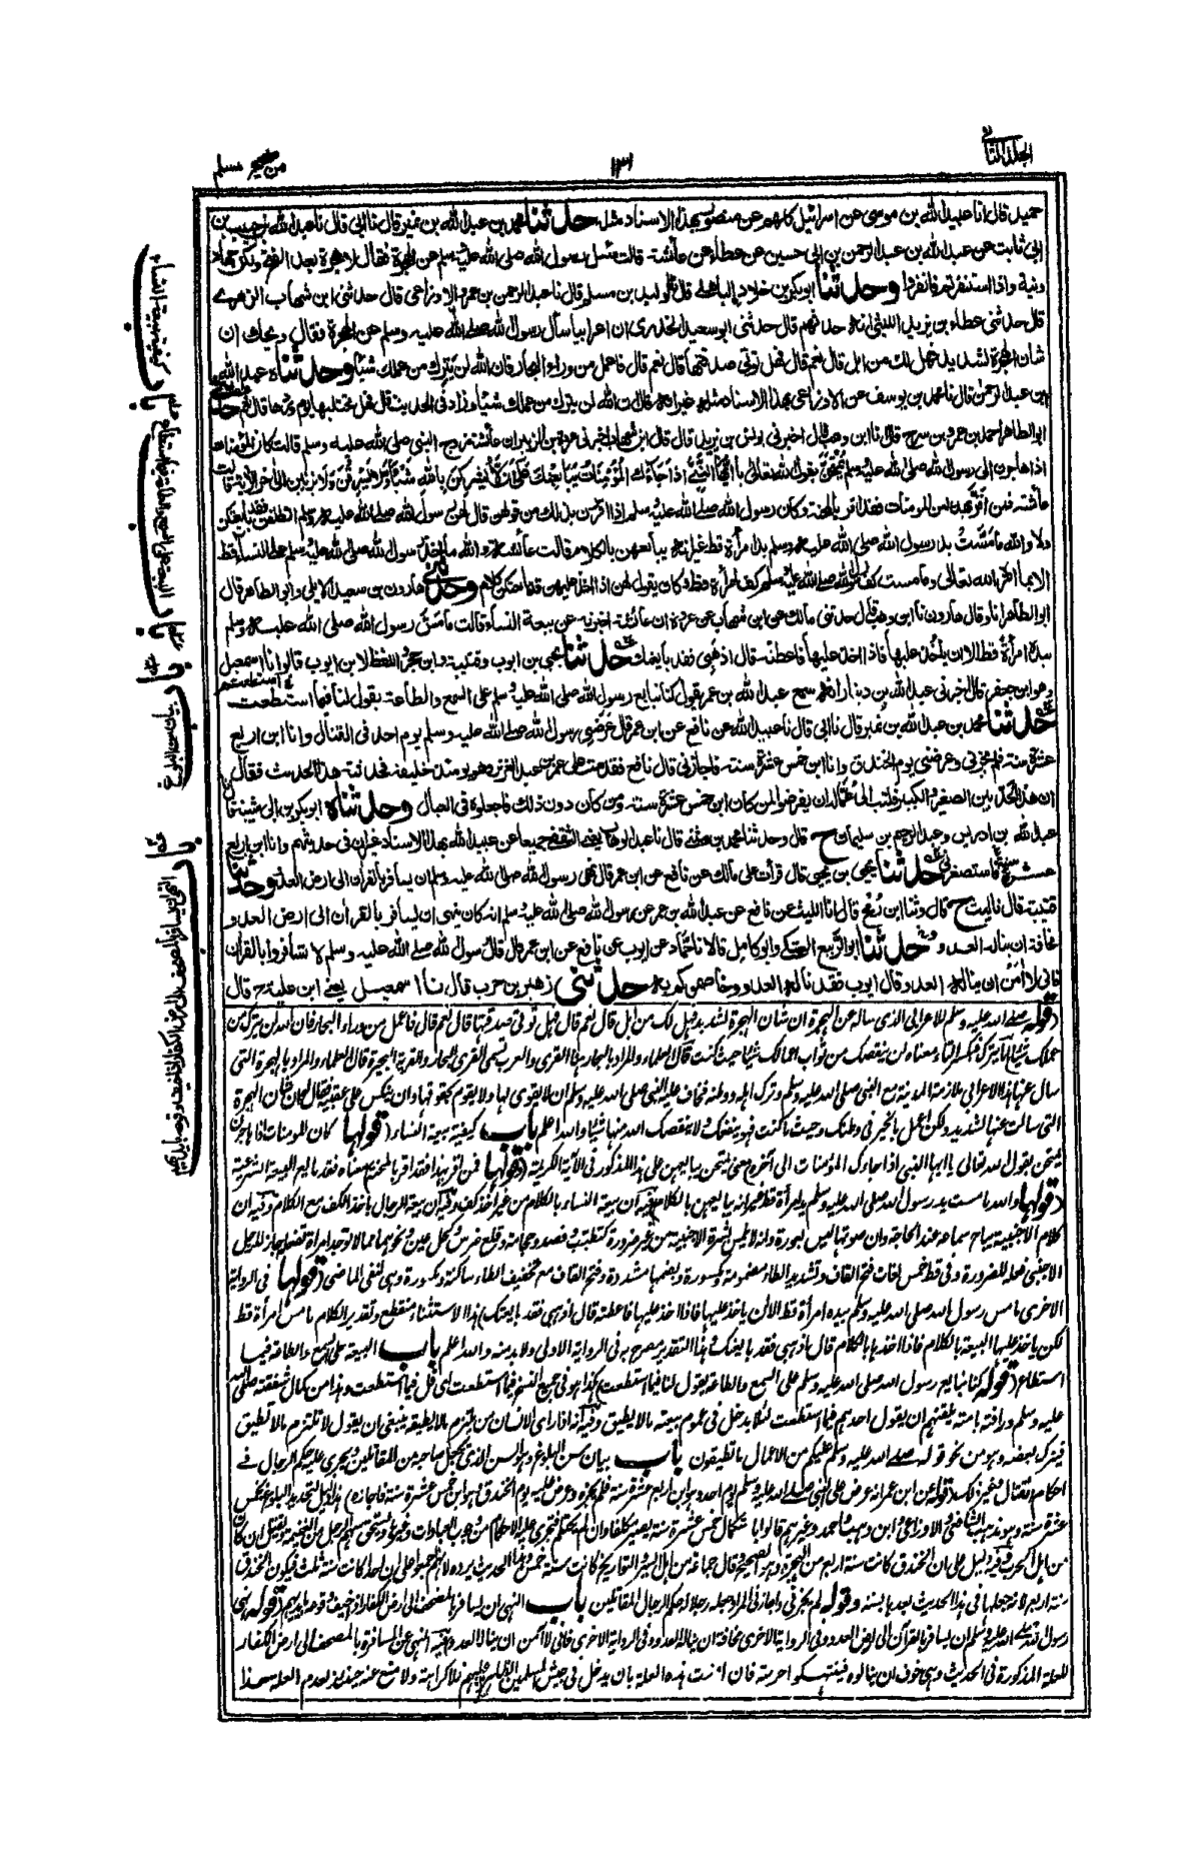 الجلد الثاني
١٣١
من صحيح مسلم
حميد قال انا عبيد الله بن موسى عن اسرائيل كلهم عن منصور بهذا الاسناد مثله حدثنا محمد بن عبد الله بن نمير قال نا ابي قال نا عبد الله بن حبيب بن
ابي ثابت عن عبد الله بن عبد الرحمن بن ابي حسين عن عطاء عن عائشة قالت سئل رسول الله صلى الله عليه وسلم عن الهجرة فقال لا هجرة بعد الفتح ولكن جهاد
ونية واذا استنفرتم فانفروا وحدثنا ابو بكر بن خلاد الباهلي قال نا الوليد بن مسلم قال نا عبد الرحمن بن عمرو الاوزاعي قال حدثني ابن شهاب الزهري
قال حدثني عطاء بن يزيد الليثي انه حدثهم قال حدثني ابو سعيد الخدري ان اعرابيا سأل رسول الله صلى الله عليه وسلم عن الهجرة فقال ويحك ان
شان الهجرة لشديد فهل لك من ابل قال نعم قال فهل تؤتي صدقتها قال نعم قال فاعمل من وراء البحار فان الله لن يترك من عملك شيئا وحدثناه عبد الله
ابن عبد الرحمن قال نا محمد بن يوسف عن الاوزاعي بهذا الاسناد مثله غير انه قال ان الله لن يترك من عملك شيئا وزاد في الحديث قال فهل تحتلبها يوم وردها قال نعم
ابو الطاهر احمد بن عمرو بن سرح قال نا ابن وهب قال اخبرني يونس بن يزيد قال قال ابن شهاب اخبرني عروة بن الزبير ان عائشة زوج النبي صلى الله عليه وسلم قالت كان المؤمنات
اذا هاجرن الى رسول الله صلى الله عليه وسلم يمتحن بقول الله تعالى يا ايها النبي اذا جاءك المؤمنات يبايعنك على ان لا يشركن بالله شيئا ولا يسرقن ولا يزنين الى اخر الاية قالت
عائشة فمن اقر بهذا من المومنات فقد اقر بالمحنة وكان رسول الله صلى الله عليه وسلم اذا اقررن بذلك من قولهن قال لهن رسول الله صلى الله عليه وسلم انطلقن فقد بايعتكن
ولا والله ما مست يد رسول الله صلى الله عليه وسلم يد امرأة قط غير انه يبايعهن بالكلام قالت عائشة والله ما اخذ رسول الله صلى الله عليه وسلم على النساء قط
الا بما امره الله تعالى وما مست كف رسول الله صلى الله عليه وسلم كف امرأة قط وكان يقول لهن اذا اخذ عليهن قد بايعتكن كلاما وحدثني هارون بن سعيد الايلي وابو الطاهر قال
ابو الطاهر انا وقال هارون نا ابن وهب قال حدثني مالك عن ابن شهاب عن عروة ان عائشة اخبرته عن بيعة النساء قالت ما مس رسول الله صلى الله عليه وسلم
بيده امرأة قط الا ان ياخذ عليها فاذا اخذ عليها فاعطته قال اذهبي فقد بايعتك حدثنا يحيى بن ايوب وقتيبة وابن حجر واللفظ لابن ايوب قالوا نا اسمعيل
وهو ابن جعفر قال اخبرني عبد الله بن دينار انه سمع عبد الله بن عمر يقول كنا نبايع رسول الله صلى الله عليه وسلم على السمع والطاعة يقول لنا فيما استطعت
حدثنا محمد بن عبد الله بن نمير قال نا ابي قال نا عبيد الله عن نافع عن ابن عمر قال عرضني رسول الله صلى الله عليه وسلم يوم احد في القتال وانا ابن اربع
عشرة سنة فلم يجزني وعرضني يوم الخندق وانا ابن خمس عشرة سنة فاجازني قال نافع فقدمت على عمر بن عبد العزيز وهو يومئذ خليفة فحدثته هذا الحديث فقال
ان هذا لحد بين الصغير والكبير فكتب الى عماله ان يفرضوا لمن كان ابن خمس عشرة سنة ومن كان دون ذلك فاجعلوه في العيال وحدثناه ابو بكر بن ابي شيبة قال نا
عبد الله بن ادريس وعبد الرحيم بن سليمان ح قال وحدثنا محمد بن مثنى قال نا عبد الوهاب يعني الثقفي جميعا عن عبيد الله بهذا الاسناد غير ان في حديثهم وانا ابن اربع
عشرة سنة فاستصغرني حدثنا يحيى بن يحيى قال قرأت على مالك عن نافع عن ابن عمر قال نهى رسول الله صلى الله عليه وسلم ان يسافر بالقران الى ارض العدو وحدثنا
قتيبة قال نا ليث ح قال وثنا ابن رمح قال انا الليث عن نافع عن عبد الله بن عمر عن رسول الله صلى الله عليه وسلم انه كان ينهى ان يسافر بالقرأن الى ارض العدو
مخافة ان يناله العدو وحدثنا ابو الربيع العتكي وابو كامل قالا نا حماد عن ايوب عن نافع عن ابن عمر قال قال رسول الله صلى الله عليه وسلم لا تسافروا بالقران
فاني لا آمن ان يناله العدو قال ايوب فقد ناله العدو وخاصموكم به حدثني زهير بن حرب قال نا اسمعيل يعني ابن علية ح قال
(قوله صلى الله عليه وسلم للاعرابي الذي ساله عن الهجرة ان شان الهجرة لشديد فهل لك من ابل قال نعم قال فهل تؤتي صدقتها قال نعم قال فاعمل من وراء البحار فان الله لن يترك من
عملك شيئا) اما يترك فبكسر التاء معناه لن ينقصك من ثواب اعمالك شيئا حيث كنت قال العلماء والمراد بالبحار هنا القرى والعرب تسمي القرى البحار والقرية البحيرة قال العلماء والمراد بالهجرة التي
سال عنها هذا الاعرابي ملازمة المدينة مع النبي صلى الله عليه وسلم وترك اهله ووطنه فخاف عليه النبي صلى الله عليه وسلم ان لا يقوى لها ولا يقوم بحقوقها وان ينكص على عقبيه فقال له ان شان الهجرة
التي سالت عنها لشديد ولكن اعمل بالخير في وطنك وحيث ما كنت فهو ينفعك ولا ينقصك الله منه شيئا والله اعلم باب كيفية بيعة النساء (قولها كان المومنات اذا هاجرن
يمتحن بقول الله تعالى يا ايها النبي اذا جاءك المؤمنات الى آخره) معنى يمتحن يبايعهن على هذا المذكور في الآية الكريمة (قولها فمن اقر بهذا فقد اقر بالمحنة) معناه فقد بايع البيعة الشرعية
(قولها والله ما مست يد رسول الله صلى الله عليه وسلم يد امرأة قط غير انه يبايعهن بالكلام) فيه ان بيعة النساء بالكلام من غير اخذ كف وفيه ان بيعة الرجال باخذ الكف مع الكلام وفيه ان
كلام الاجنبية يباح سماعه عند الحاجة وان صوتها ليس بعورة وانه لا يلمس بشرة الاجنبية من غير ضرورة كتطبب وفصد وحجامة وقلع ضرس وكحل عين ونحوها مما لا توجد امرأة تفعله جاز للرجل
الاجنبي فعله للضرورة وفي قط خمس لغات فتح القاف وتشديد الطاء مضمومة ومكسورة وبضمها مشددة وفتح القاف مع تخفيف الطاء ساكنة ومكسورة وهي لنفي الماضي (قولها في الرواية
الاخرى ما مس رسول الله صلى الله عليه وسلم بيده امرأة قط الا ان ياخذ عليها فاذا اخذ عليها فاعطته قال اذهبي فقد بايعتك) هذا الاستثناء منقطع وتقدير الكلام ما مس امرأة قط
لكن ياخذ عليها البيعة بالكلام فاذا اخذها بالكلام قال اذهبي فقد بايعتك وهذا التقدير مصرح به في الرواية الاولى ولا بد منه والله اعلم باب البيعة على السمع والطاعة فيما
استطاع (قوله كنا نبايع رسول الله صلى الله عليه وسلم على السمع والطاعة يقول لنا فيما استطعت) هكذا هو في جميع النسخ فيما استطعت اي قل فيما استطعت وهذا من كمال شفقته صلى الله
عليه وسلم ورافته بامته يلقنهم ان يقول احدهم فيما استطعت لئلا يدخل في عموم بيعته ما لا يطيق وفيه انه اذا راى الانسان من يلتزم ما لا يطيقه ينبغي ان يقول لا تلتزم ما لا تطيق
فيترك بعضه وهو من نحو قوله صلى الله عليه وسلم عليكم من الاعمال ما تطيقون باب بيان سن البلوغ وهو السن الذي يجعل صاحبه من المقاتلين ويجري عليه حكم الرجال في
احكام القتال وغير ذلك (قوله عن ابن عمر انه عرض على النبي صلى الله عليه وسلم يوم احد وهو ابن اربع عشرة سنة فلم يجزه وعرض عليه يوم الخندق وهو ابن خمس عشرة سنة فاجازه) هذا دليل لتحديد البلوغ بخمس
عشرة سنة وهو مذهب الشافعي والاوزاعي وابن وهب واحمد وغيرهم قالوا باستكمال خمس عشرة سنة يصير مكلفا وان لم يحتلم فتجري عليه الاحكام من وجوب العبادات وغيره ويستحق سهم الرجل من الغنيمة ويقتل ان كان
من اهل الحرب وفيه دليل على ان الخندق كانت سنة اربع من الهجرة وهو الصحيح وقال جماعة من اهل السير والتواريخ كانت سنة خمس وهذا الحديث يرده لانهم اجمعوا على ان احدا كانت سنة ثلث فيكون الخندق
سنة اربع لانه جعلها في هذا الحديث بعدها بسنة وقوله لم يجزني واجازني المراد جعله رجلا له حكم الرجال المقاتلين باب النهي ان يسافر بالمصحف الى ارض الكفار اذا خيف وقوعه بايديهم (قوله نهى
رسول الله صلى الله عليه وسلم ان يسافر بالقرآن الى ارض العدو وفي الرواية الاخرى مخافة ان يناله العدو وفي الرواية الاخرى فاني لا آمن ان يناله العدو) فيه النهي عن المسافرة بالمصحف الى ارض الكفار
للعلة المذكورة في الحديث وهي خوف ان ينالوه فينتهكوا حرمته فان امنت هذه العلة بان يدخل في جيش المسلمين الظاهرين عليهم فلا كراهة ولا منع عنه حينئذ لعدم العلة هذا
باب كيفية بيعة النساء
باب البيعة على السمع والطاعة فيما استطاع
باب بيان سن البلوغ
باب النهي ان يسافر بالمصحف الى ارض الكفار اذا خيف وقوعه بايديهم